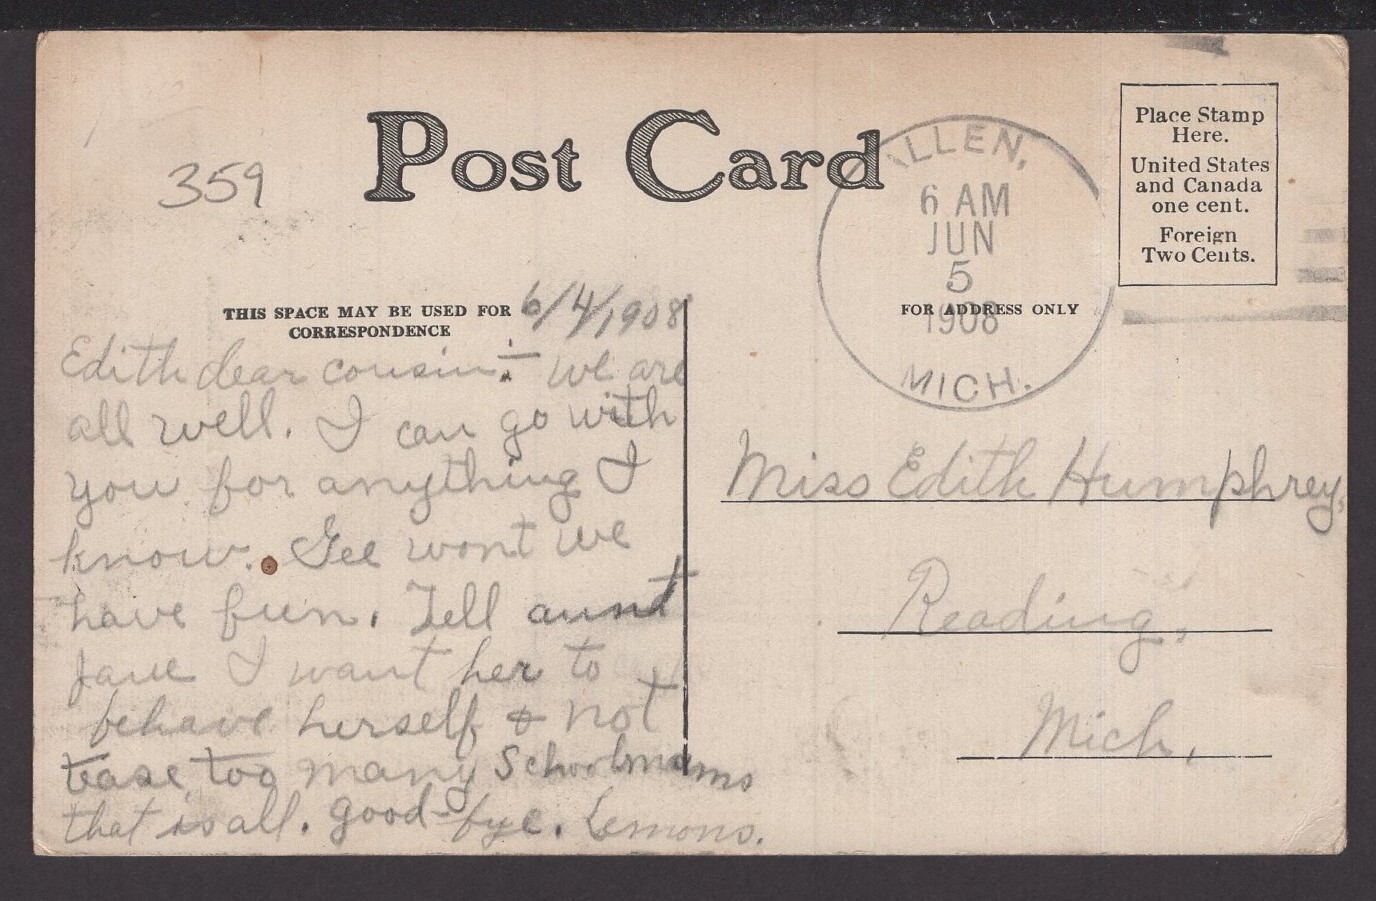 359
Post Card
ALLEN,
6 AM
JUN
5
1908
MICH.
Place Stamp
Here.
United States
and Canada
one cent.
Foreign
Two Cents.
THIS SPACE MAY BE USED FOR
CORRESPONDENCE
6/4/1908
FOR ADDRESS ONLY
Edith dear cousin:- we are
all well. I can go with
you for anything I
know. Gee wont we
have fun. Tell aunt
Jane I want her to
behave herself & not
tease too many Schoolmams
that is all. good-bye. Lemons.
Miss Edith Humphrey,
Reading,
Mich.